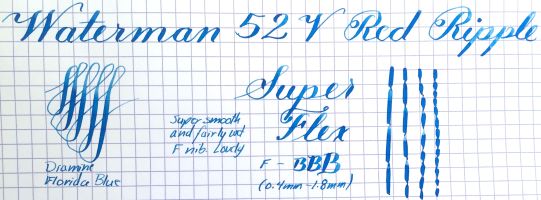 Waterman 52 V Red Ripple
Super
Flex
Super smooth
and fairly wet
F nib. Lovely
F - BBB
(0.4mm-1.8mm)
Diamine
Florida Blue